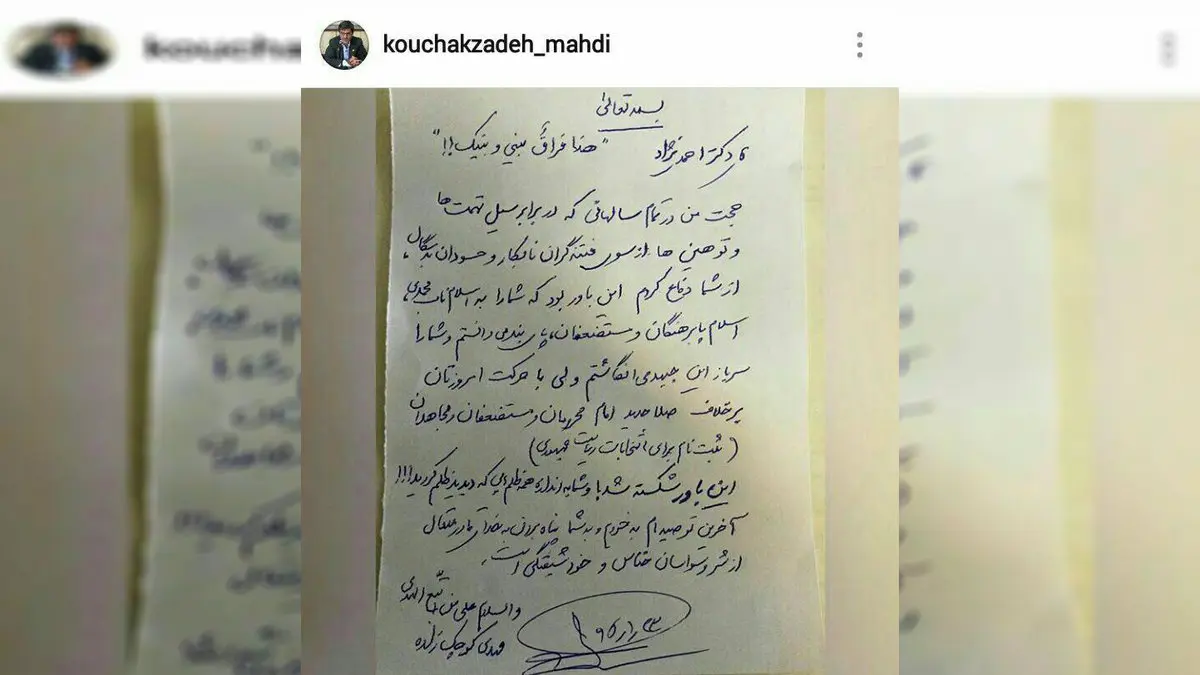 kouchakzadeh_mahdi
بسمه تعالی
دکتر احمدی نژاد "هذا فراقُ بيني و بينك!!"
حجت من در تمام سالهائی که در برابر سیل تهمت ها
و توهین ها از سوی فتنه گران نابکار و حسودان بدسگال،
از شما دفاع کردم این باور بود که شما را به اسلام ناب محمدی،
اسلام پابرهنگان و مستضعفان، پای بند می دانستم و شما را
سرباز این جبهه می انگاشتم ولی با حرکت امروزتان
بر خلاف صلاحدید امام محرومان و مستضعفان و مجاهدان
(ثبت نام برای انتخابات ریاست جمهوری)
این باور شکسته شد و شما به اندازه همه ظلم هایی که دیدید ظلم کردید!!!
آخرین توصیه ام به خودم و به شما پناه بردن به خدای قادر متعال
از شر وسواسان خناس و خودشیفتگی است.
والسلام علی من اتبع الهدی
مهدی کوچک زاده